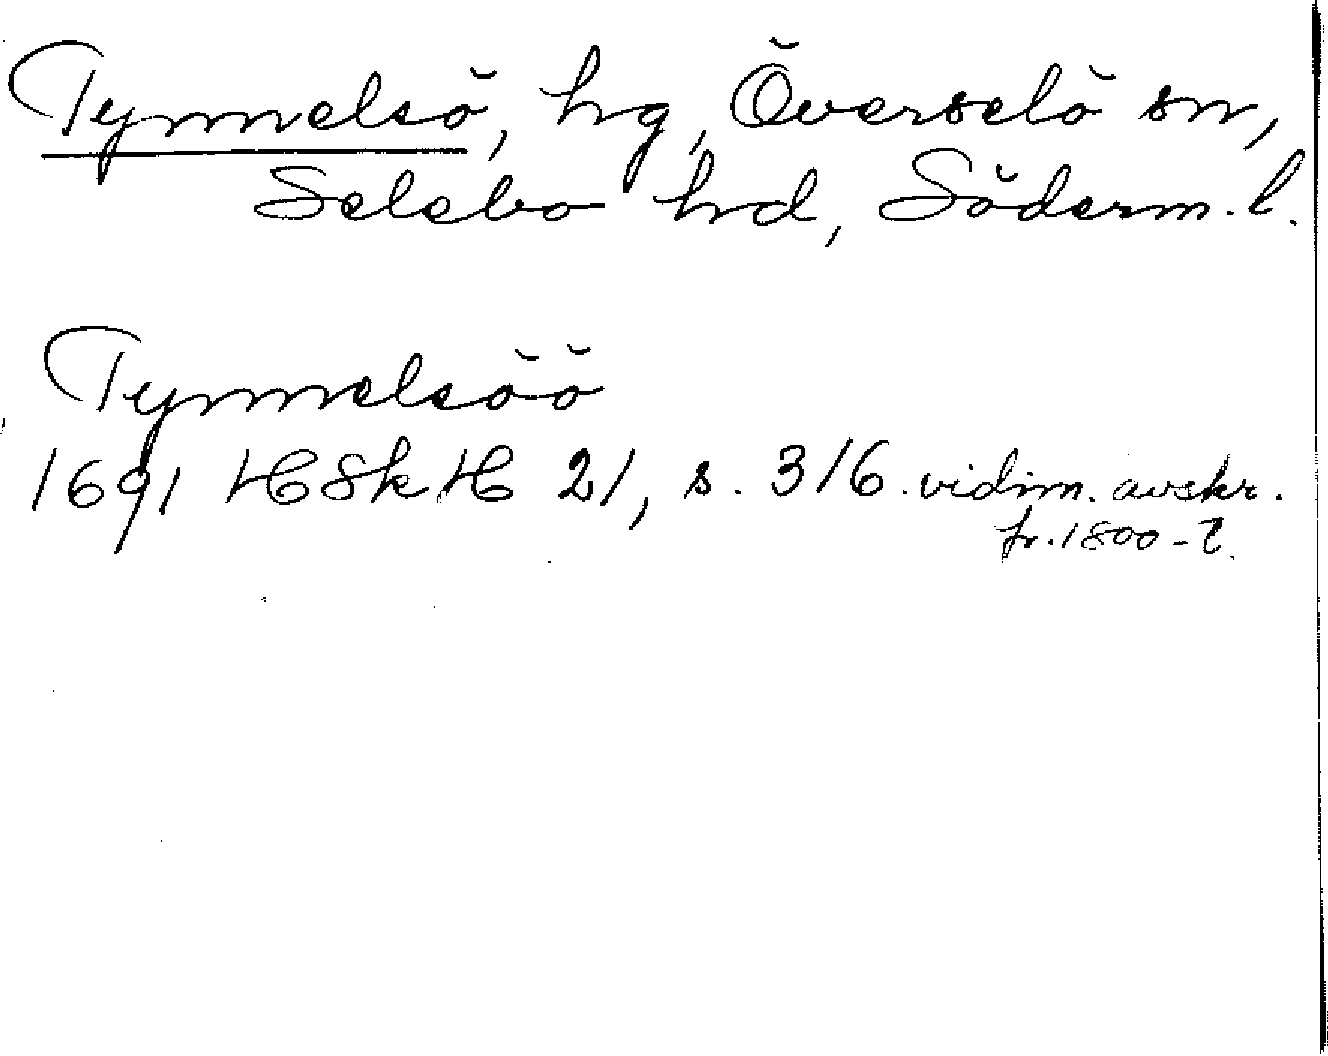 Tynnelsö, hg, Överselö sn,
Selebo hd, Söderm. l.
Tynnelsöö
1691 HSkH 21, s. 316. vidim. avskr.
fr. 1800-t.